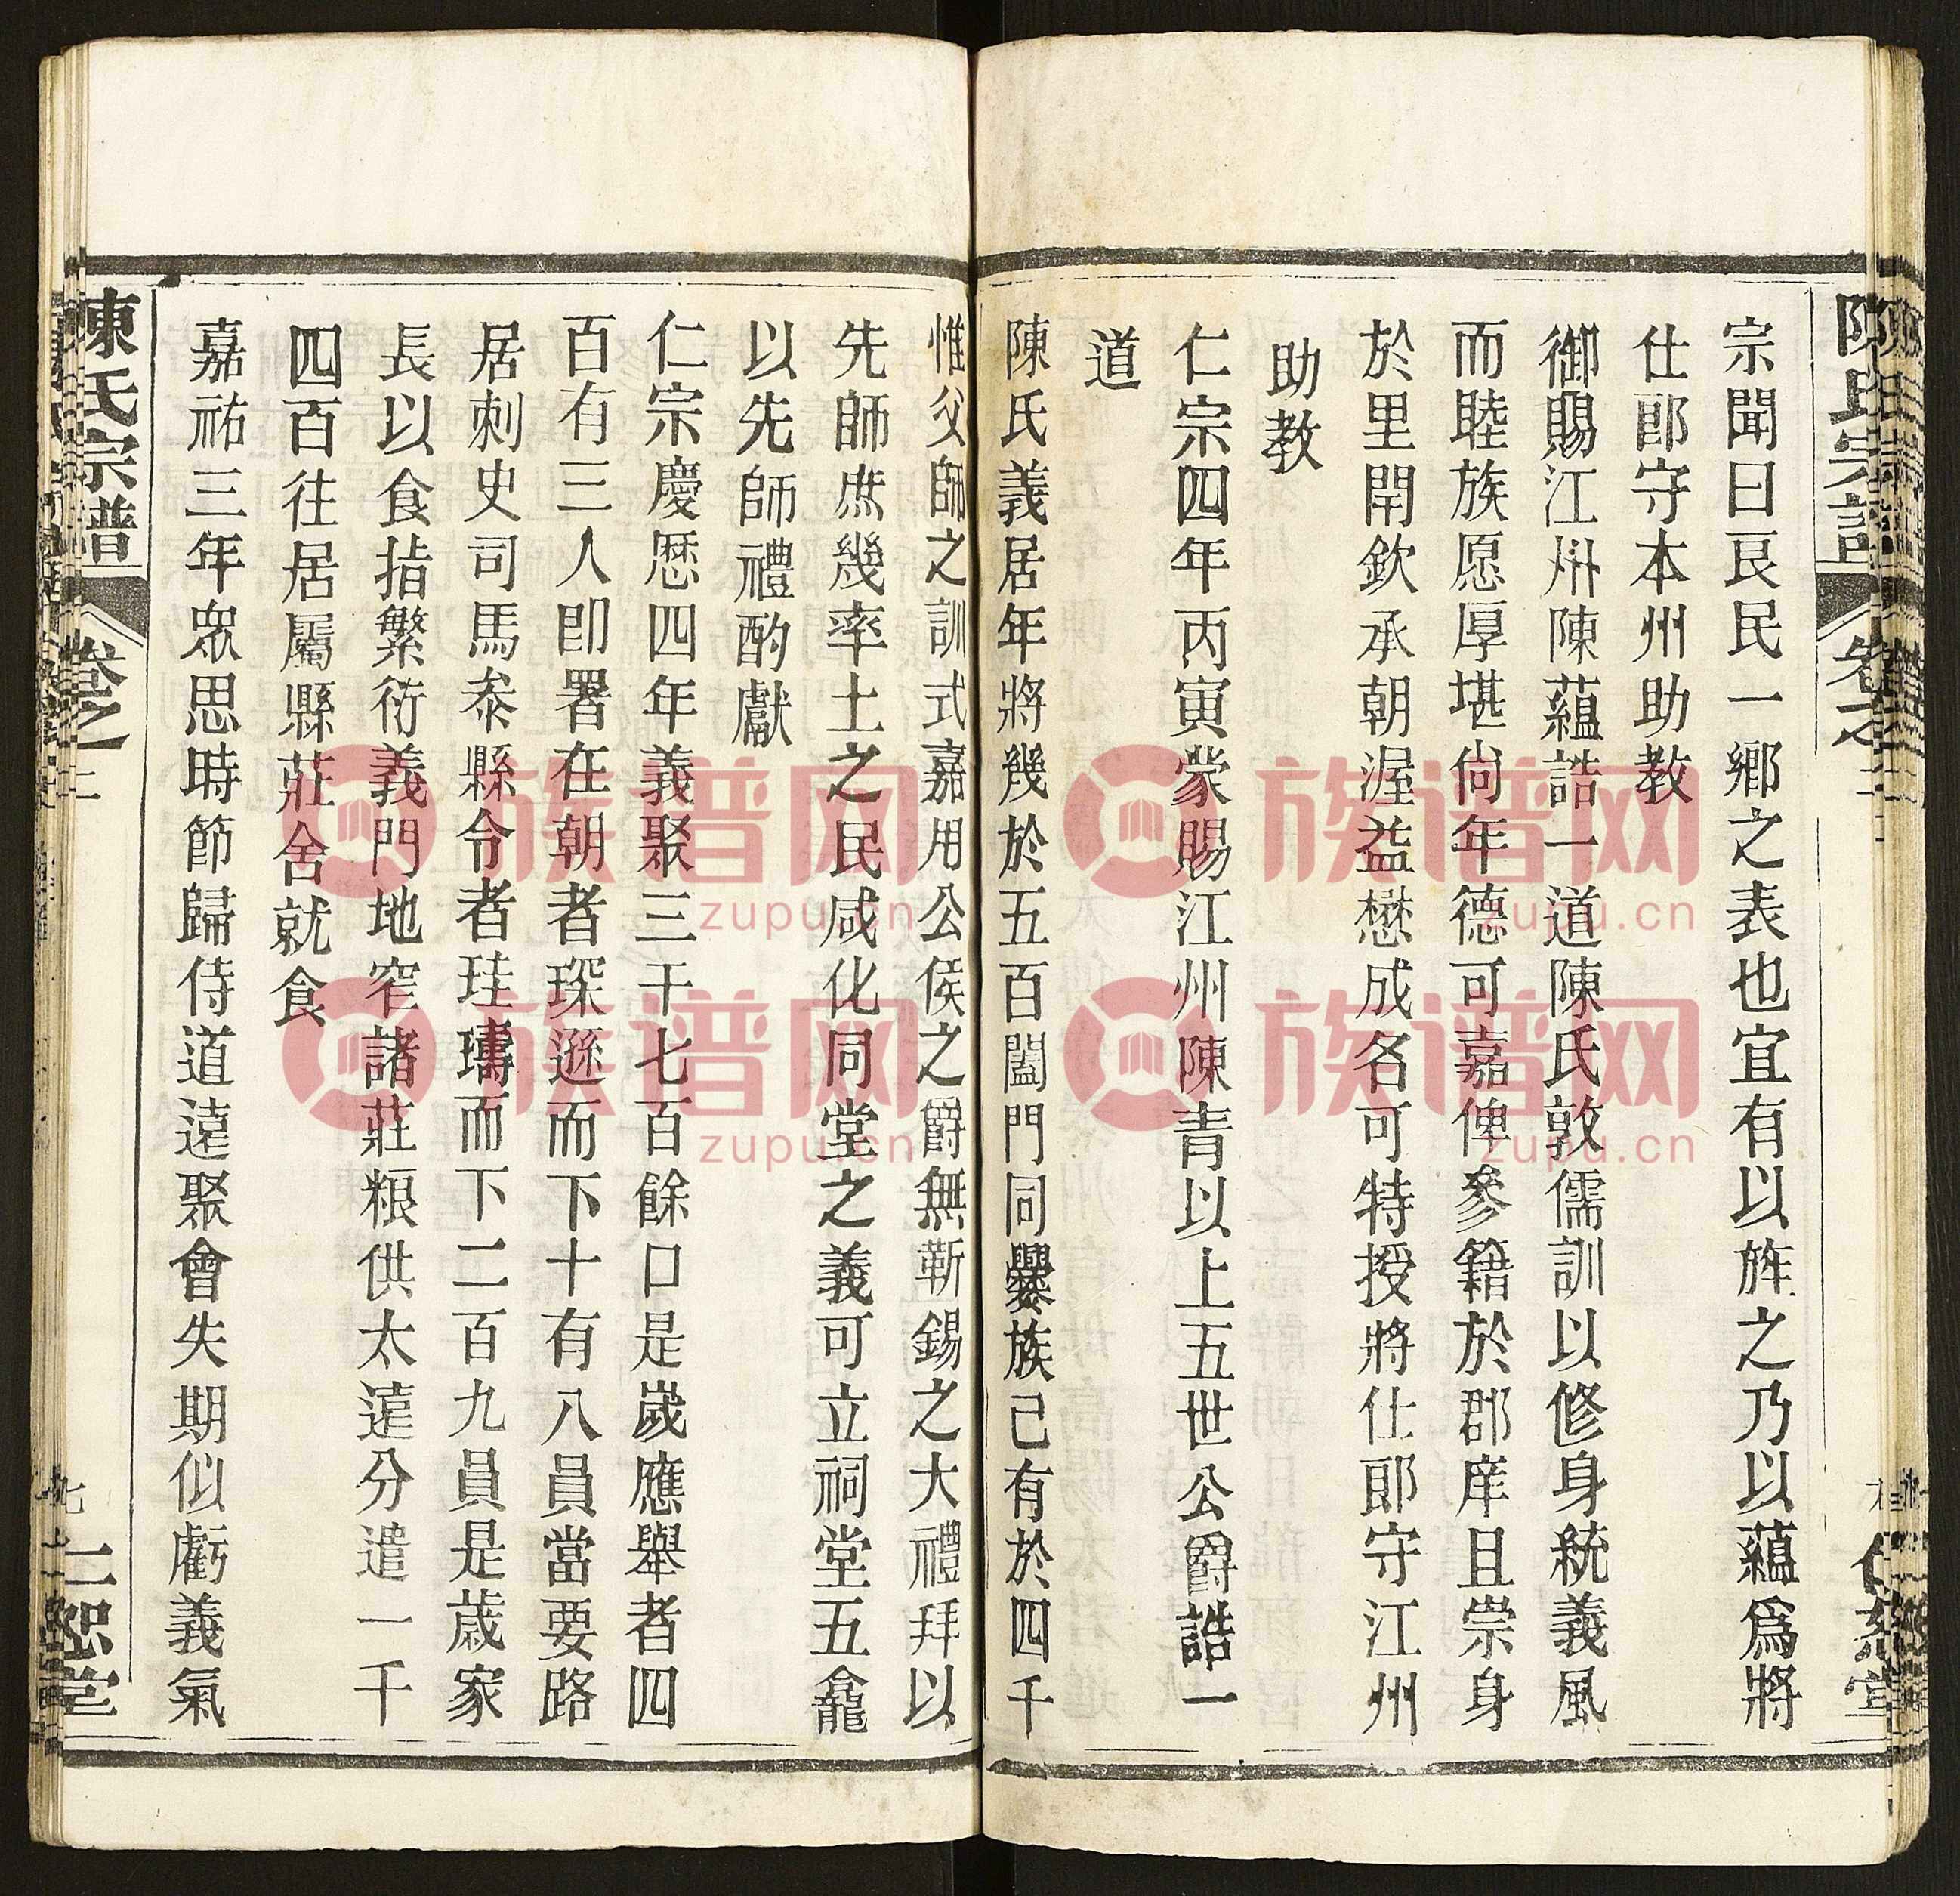 宗聞曰良民一鄉之表也宜有以旌之乃以蘊爲將
仕郎守本州助教
御賜江州陳蘊誥一道陳氏敦儒訓以修身統義風
而睦族愿厚堪尚年德可嘉俾參籍於郡庠且崇身
於里閈欽承朝渥益懋成名可特授將仕郎守江州
助教
仁宗四年丙寅蒙賜江州陳青以上五世公爵誥一
道
陳氏義居年將幾於五百闔門同爨族己有於四千
惟父師之訓式嘉用公侯之爵無靳錫之大禮拜以
先師庶幾率土之民咸化同堂之義可立祠堂五龕
以先師禮酌獻
仁宗慶歴四年義聚三千七百餘口是歲應舉者四
百有三人即署在朝者琛遜而下十有八員當要路
居刺史司馬叅縣令者珪璹而下二百九員是歲家
長以食指繁衍義門地窄諸莊粮供太遠分遣一千
四百往居屬縣莊舍就食
嘉祐三年眾思時節歸侍道遠聚會失期似虧義氣
陳氏宗譜
卷之一
仁恕堂
陳氏宗譜
卷之
族谱网
zupu.cn
族谱网
zupu.cn
族谱网
zupu.cn
族谱网
zupu.cn